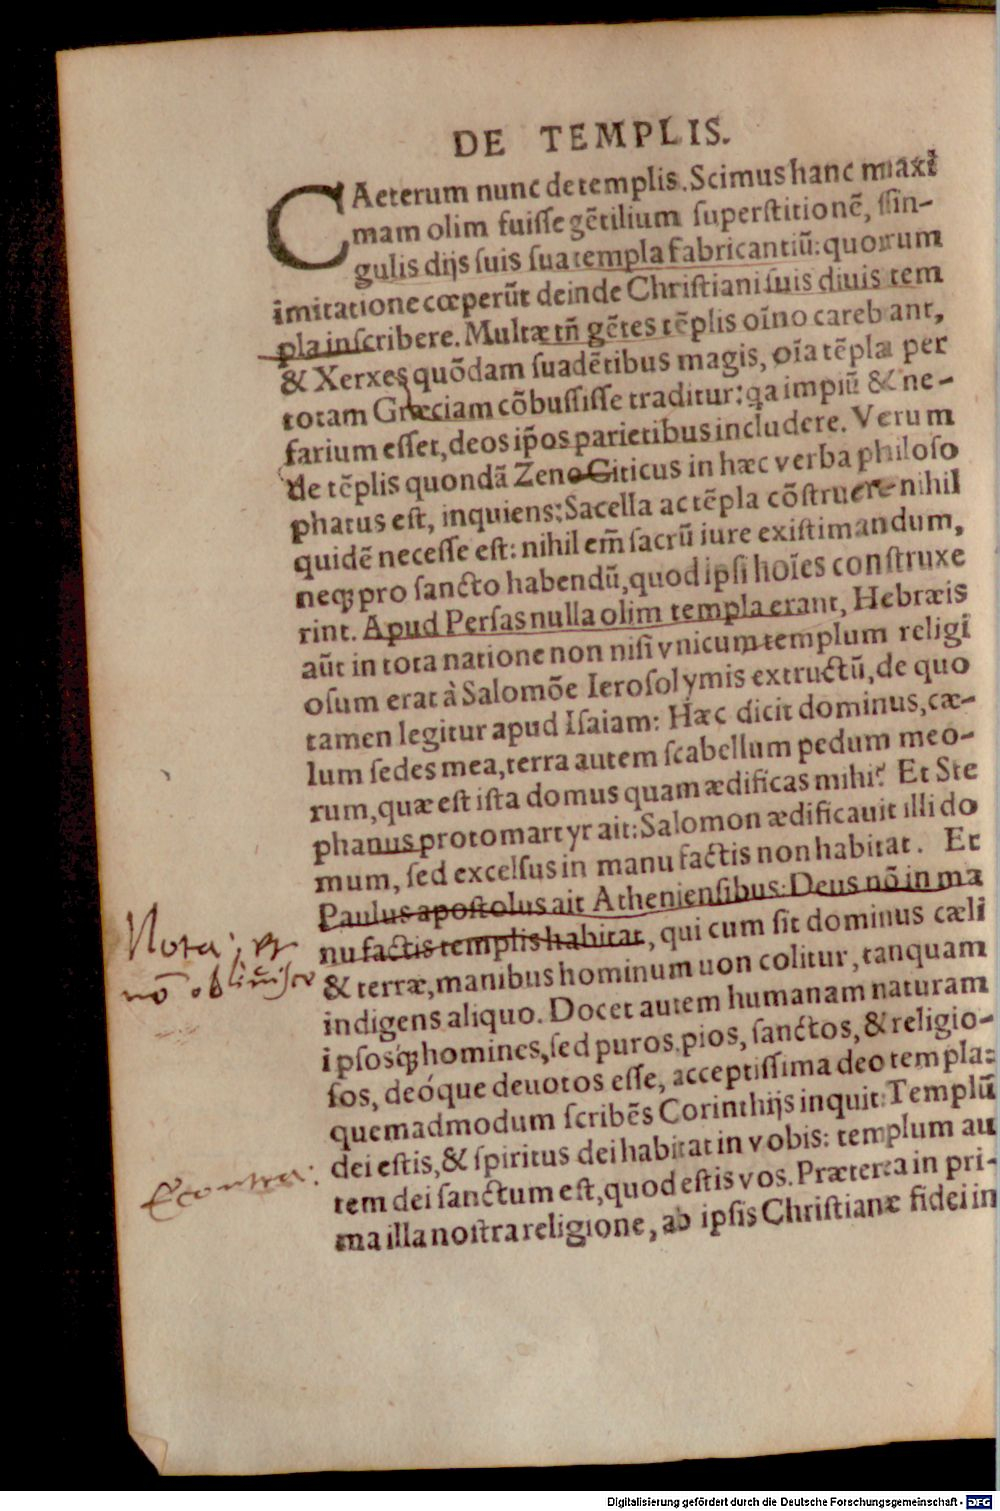 DE TEMPLIS.
CAeterum nunc de templis. Scimus hanc maxi
mam olim fuiſſe gẽtilium ſuperſtitionẽ, ſſin-
gulis dijs ſuis ſua templa fabricantiũ: quorum
imitatione cœperũt deinde Chriſtiani ſuis diuis tem
pla inſcribere. Multæ tñ gẽtes tẽplis oĩno carebant,
& Xerxes quõdam ſuadẽtibus magis, oĩa tẽpla per
totam Græciam cõbuſſiſſe traditur: ꝗa impiũ & ne-
farium eſſet, deos ip̃os parietibus includere. Verum
de tẽplis quondã Zeno Citicus in hæc verba philoſo
phatus eſt, inquiens: Sacella ac tẽpla cõſtruere nihil
quidẽ neceſſe eſt: nihil em̃ ſacrũ iure exiſtimandum,
neqꝫ pro ſancto habendũ, quod ipſi hoĩes conſtruxe
rint. Apud Perſas nulla olim templa erant, Hebræis
aũt in tota natione non niſi vnicum templum religi
oſum erat à Salomõe Ieroſolymis extructũ, de quo
tamen legitur apud Iſaiam: Hæc dicit dominus, cæ-
lum ſedes mea, terra autem ſcabellum pedum meo-
rum, quæ eſt iſta domus quam ædificas mihi? Et Ste
phanus protomartyr ait: Salomon ædificauit illi do
mum, ſed excelſus in manu factis non habitat. Et
Paulus apoſtolus ait Athenienſibus: Deus nõ in ma
nu factis templis habitat, qui cum ſit dominus cæli
& terræ, manibus hominum uon colitur, tanquam
indigens aliquo. Docet autem humanam naturam
ipſosqꝫ homines, ſed puros, pios, ſanctos, & religio-
ſos, deóque deuotos eſſe, acceptiſſima deo templa:
quemadmodum ſcribẽs Corinthijs inquit: Templũ
dei eſtis, & ſpiritus dei habitat in vobis: templum au
tem dei ſanctum eſt, quod eſtis vos. Præterea in pri-
ma illa noſtra religione, ab ipſis Chriſtianæ fidei in
Nota; et
nõ obliuiſcere
E contra:
Digitalisierung gefördert durch die Deutsche Forschungsgemeinschaft - DFG